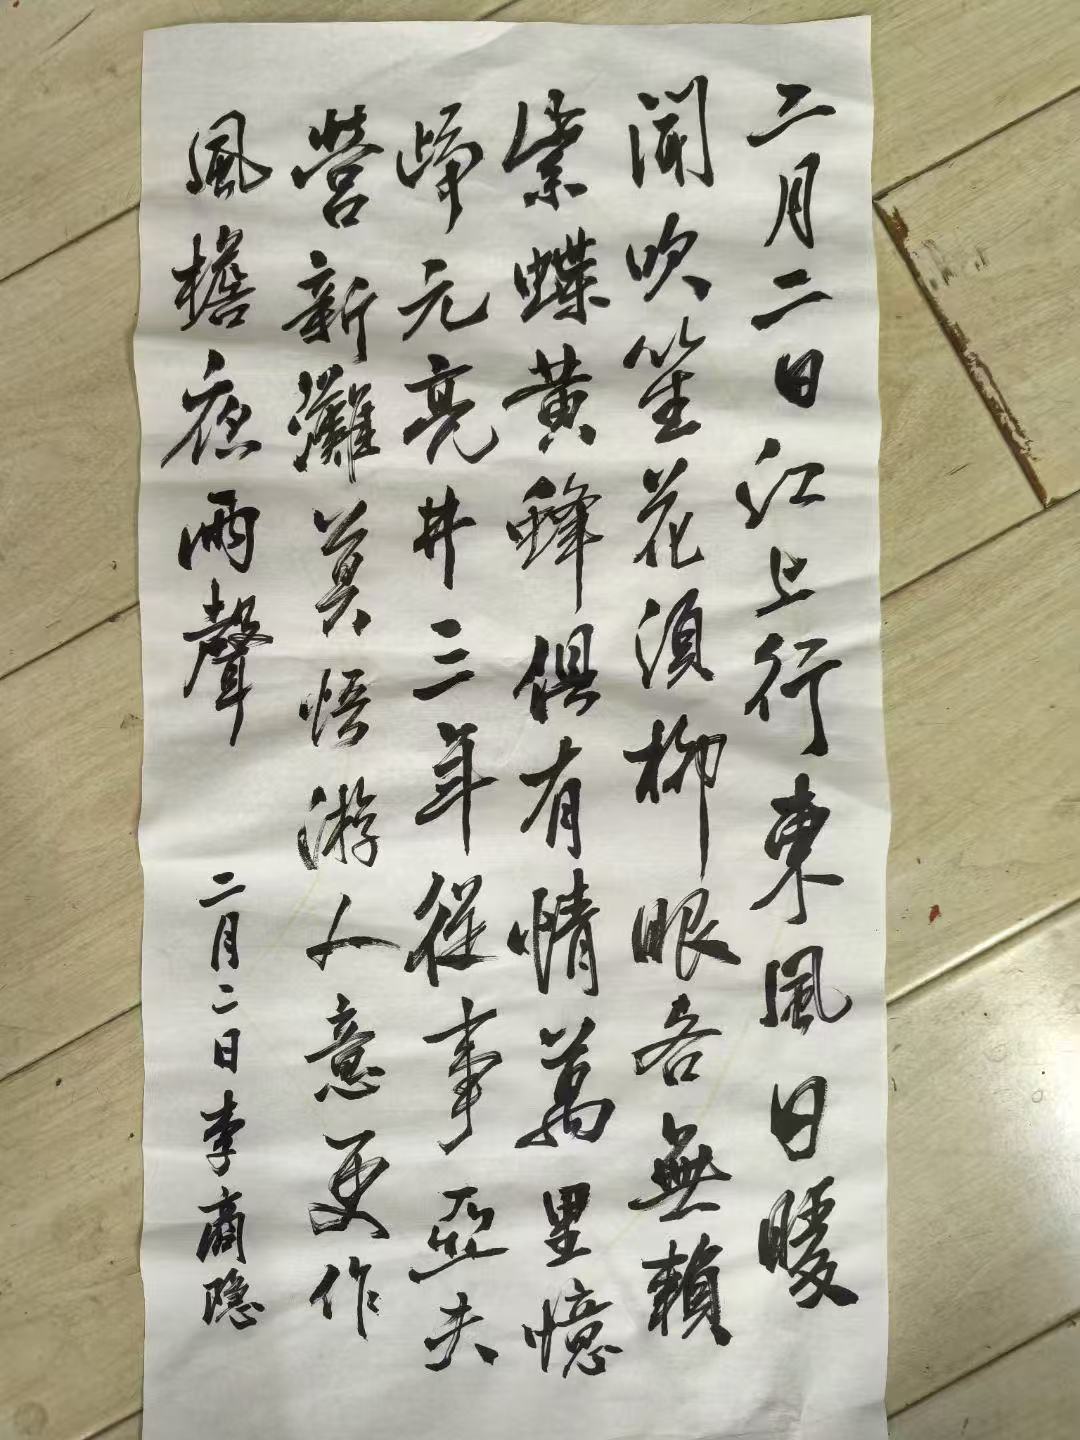 二月二日江上行東風日暖
聞吹笙花須柳眼各無賴
紫蝶黃蜂俱有情萬里憶
歸元亮井三年從事亞夫
營新灘莫悟游人意更作
風檐夜雨聲
二月二日李商隐